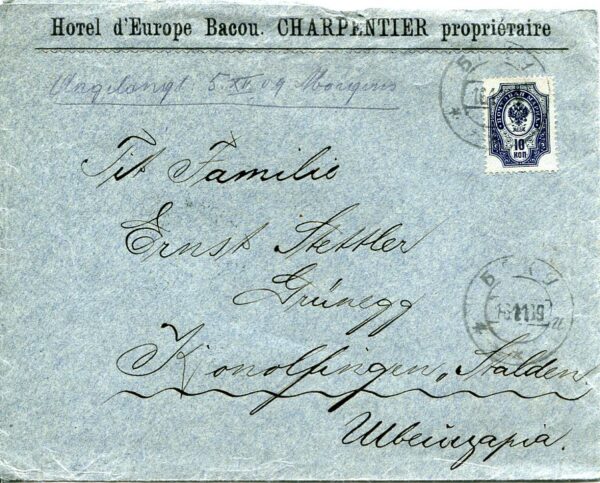 Hotel d'Europe Bacou. CHARPENTIER propriétaire
Angelangt 5. XII 09 Morgens
БАКУ
ПОЧТОВАЯ МАРКА
10
КОП
Tit Familie
Ernst Stettler
Grünegg
БАКУ
Konolfingen, Stalden.
Швейцарія.